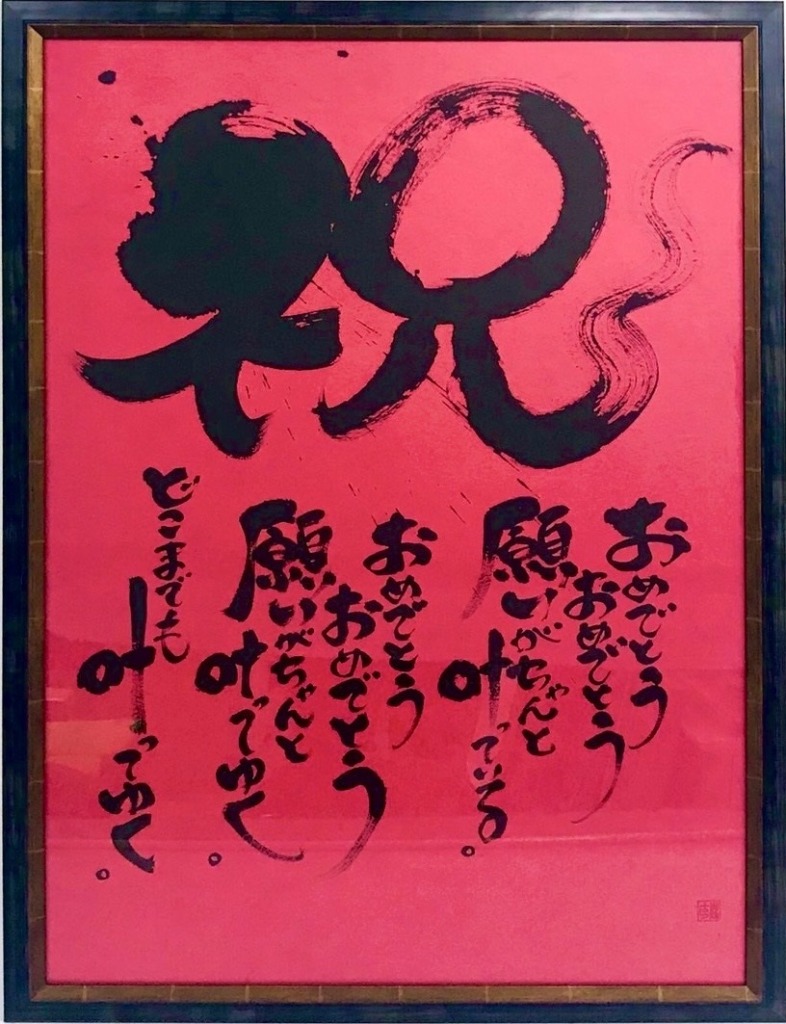 祝
おめでとう
おめでとう
願いがちゃんと
叶っている。
おめでとう
おめでとう
願いがちゃんと
叶ってゆく。
どこまでも
叶ってゆく。